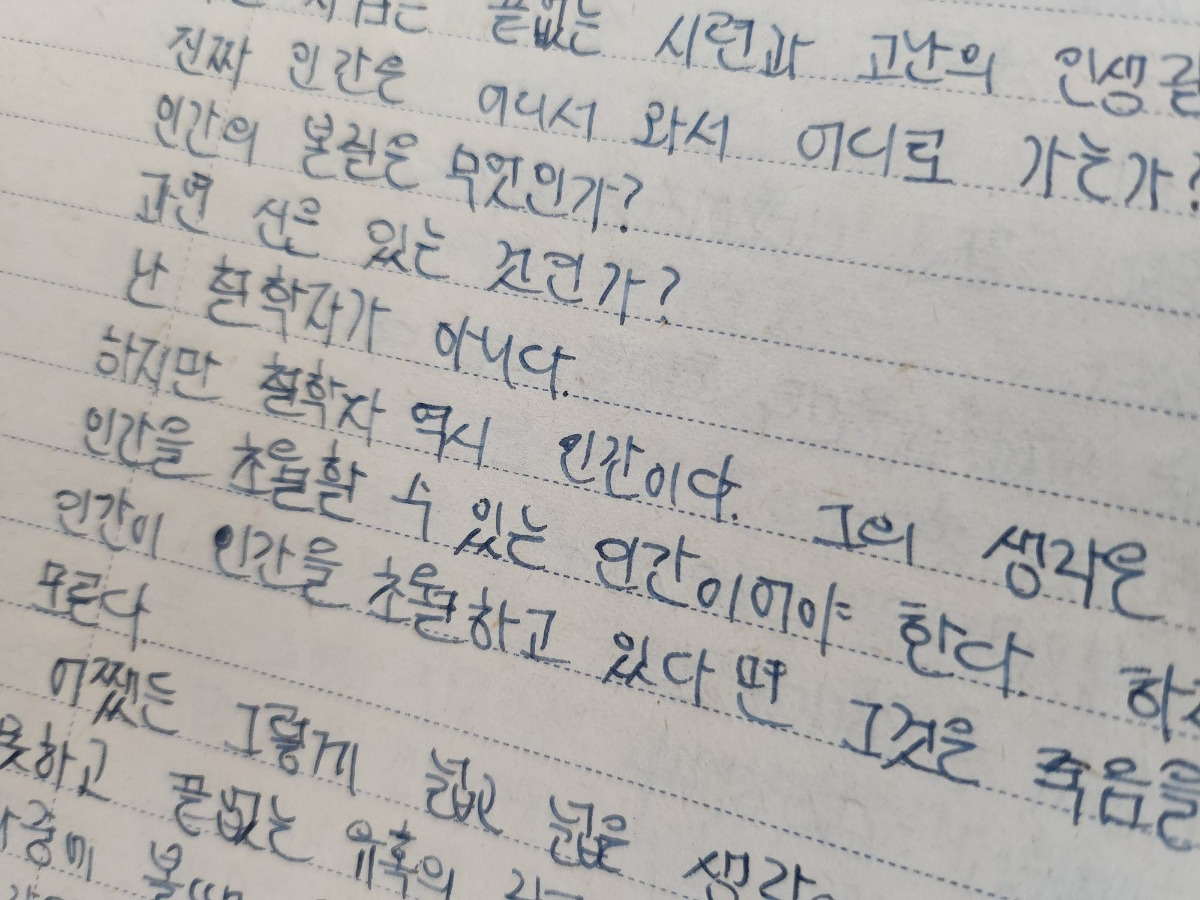 끝없는 시련과 고난의 인생을
진짜 인간은 어디서 와서 어디로 가는가?
인간의 본질은 무엇인가?
과연 신은 있는 것인가?
난 철학자가 아니다.
하지만 철학자 역시 인간이다. 그의 생각은
인간을 초월할 수 있는 인간이어야 한다. 하지
인간이 인간을 초월하고 있다면 그것은 죽음을
모른다.
어쨌든 그렇게 넓고 넓은 생각
못하고 끝없는 유혹의
중에 볼때